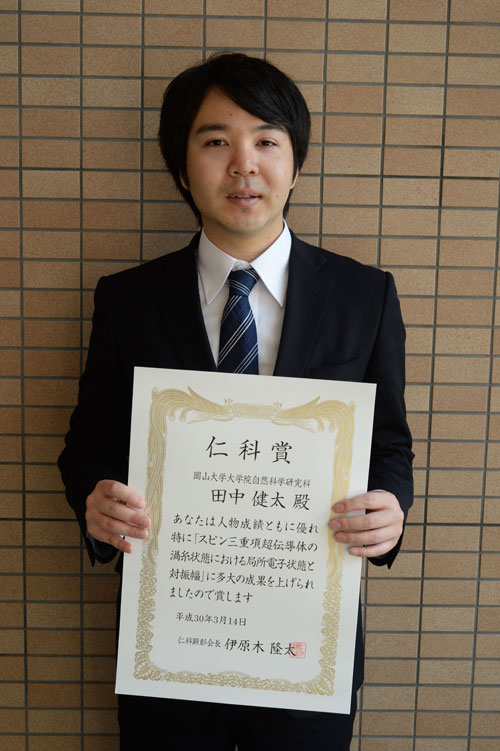 仁科賞
岡山大学大学院自然科学研究科
田中 健太 殿
あなたは人物成績ともに優れ
特に「スピン三重項超伝導体の
渦糸状態における局所電子状態と
対振幅」に多大の成果を上げられ
ましたので賞します
平成30年3月14日
仁科顕彰会長 伊原木 隆太